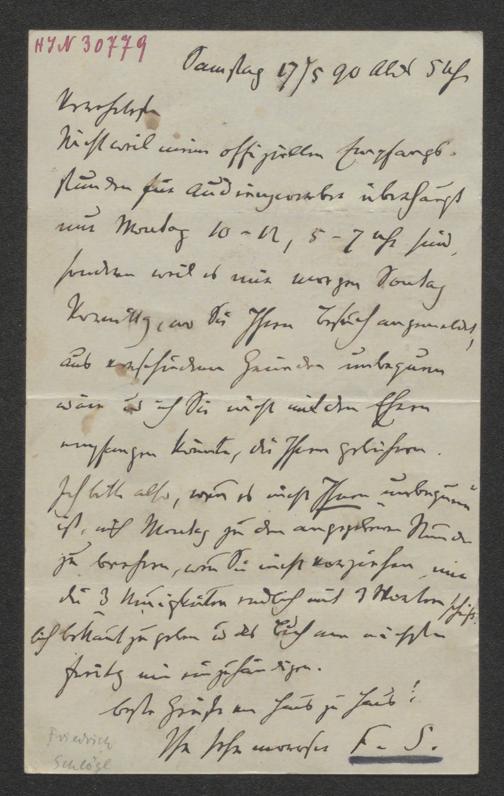 HIN 30779
Samstag 17/5 90 Abds 5 Uhr
Verehrtester
Nicht weil meine offiziellen Empfangs-
stunden für Audienzwerber überhaupt
nur Montag 10-12, 5-7 Uhr sind,
sondern weil es mir morgen Sontag
Vormittg, wo Sie Ihren Besuch angemeldet,
aus verschiedenen Gründen unbequem
wäre u ich Sie nicht mit den Ehren
empfangen könnte, die Ihnen gebühren.
Ich bitte also, wenn es nicht Ihnen unbequem
ist, auf Montag zu den angegebenen Stunden
zu, wenn Sie nicht vorziehen, mir
die 3 Neuigkeiten endlich mit 3 Worten schrift-
lich bekannt zu geben u das Buch am nächsten
Freitg mir einzuhändigen.
beste Grüße von Haus zu Haus!
Ihr sehr moroser F. S.
Friedrich
Schlögl